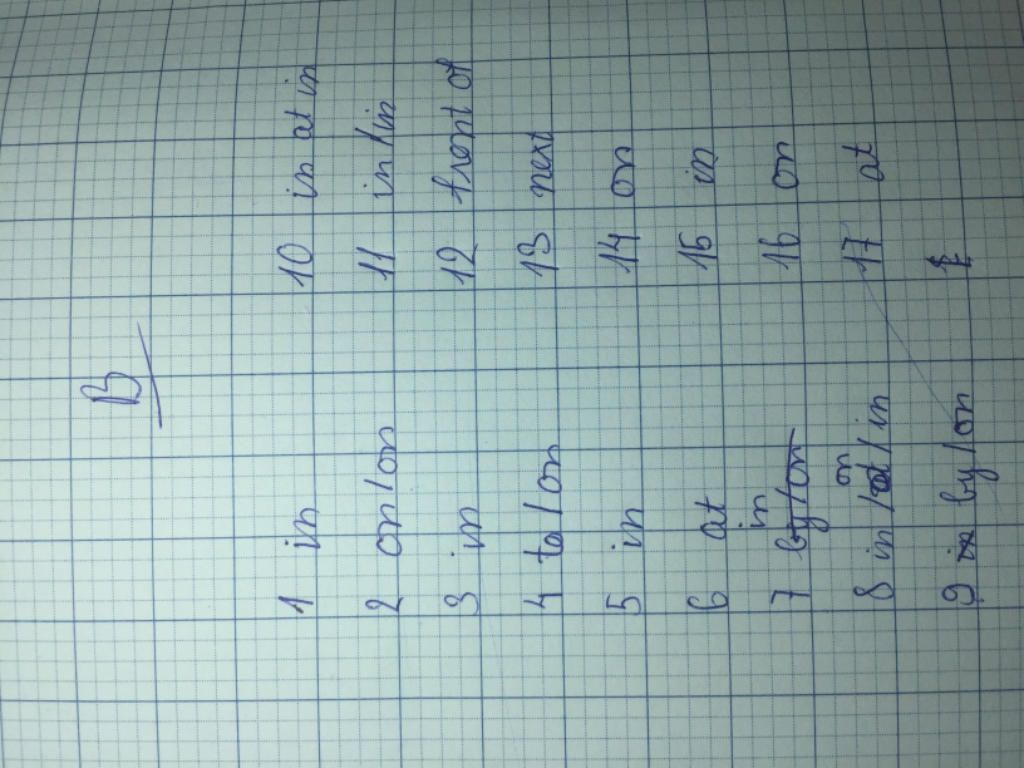 B
1 in
2 on/on
3 in
4 to/on
5 in
6 at
7 in by/on
8 in/on/in
9 in by/on
10 in at in
11 in/in
12 front of
13 next
14 on
15 in
16 on
17 at